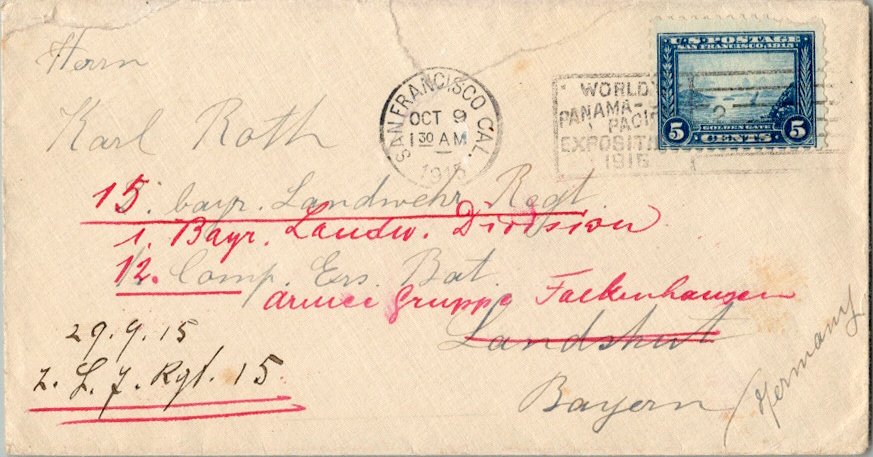 Herrn
Karl Roth
15. bayr. Landwehr Regt.
1. Bayr. Landw. Division
12. Comp. Ers. Bat.
Armee Gruppe Falkenhausen
Landshut
Bayern (Germany
29.9.15
z. L. J. Rgt. 15
SAN FRANCISCO CAL.
OCT 9
1 30 AM
1915
WORLD
PANAMA-
PACI
EXPOSIT
1915
U.S. POSTAGE
SAN FRANCISCO, 1915
GOLDEN GATE
5 CENTS 5